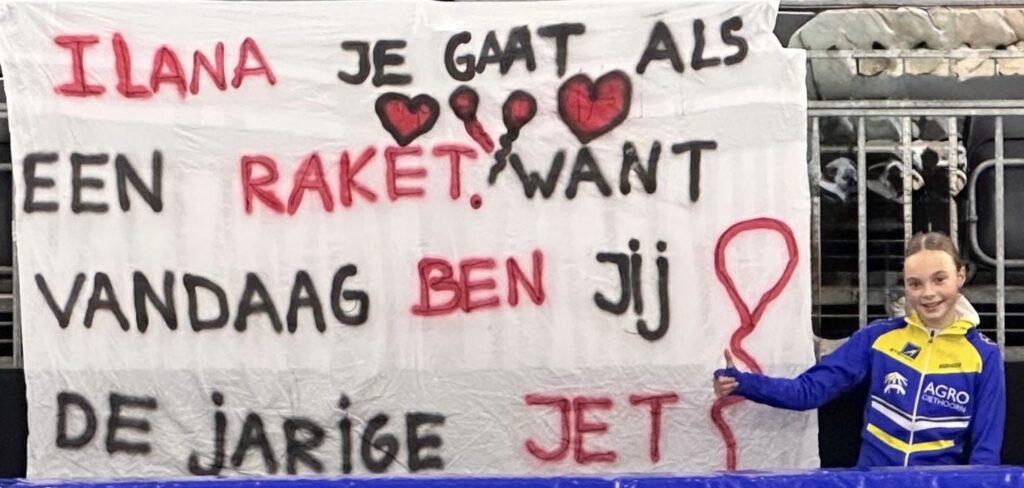 ILANA JE GAAT ALS
EEN RAKET. WANT
VANDAAG BEN JIJ
DE JARIGE JET
AGRO
GIETHOORN